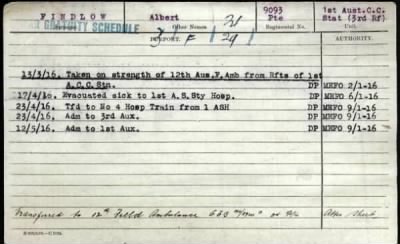 FINDLOW Albert 9093 1st Aust.C.C.
Pte Stat (3rd Rf)
WAR GRATUITY SCHEDULE Other Names Regimental No. Unit.
REPORT. AUTHORITY.
13/3/16. Taken on strength of 12th Aus.F.Amb from Rfts of 1st
A.C.C.Stn. DP MEFO 2/1-16
17/4/16. Evacuated sick to 1st A.S.Sty Hosp. DP MEFO 6/1-16
23/4/16. Tfd to No 4 Hosp Train from 1 ASH DP MEFO 9/1-16
23/4/16. Adm to 3rd Aux. DP MEFO 9/1-16
12/5/16. Adm to 1st Aux. DP MEFO 9/1-16
Transferred to 12th Field Ambulance